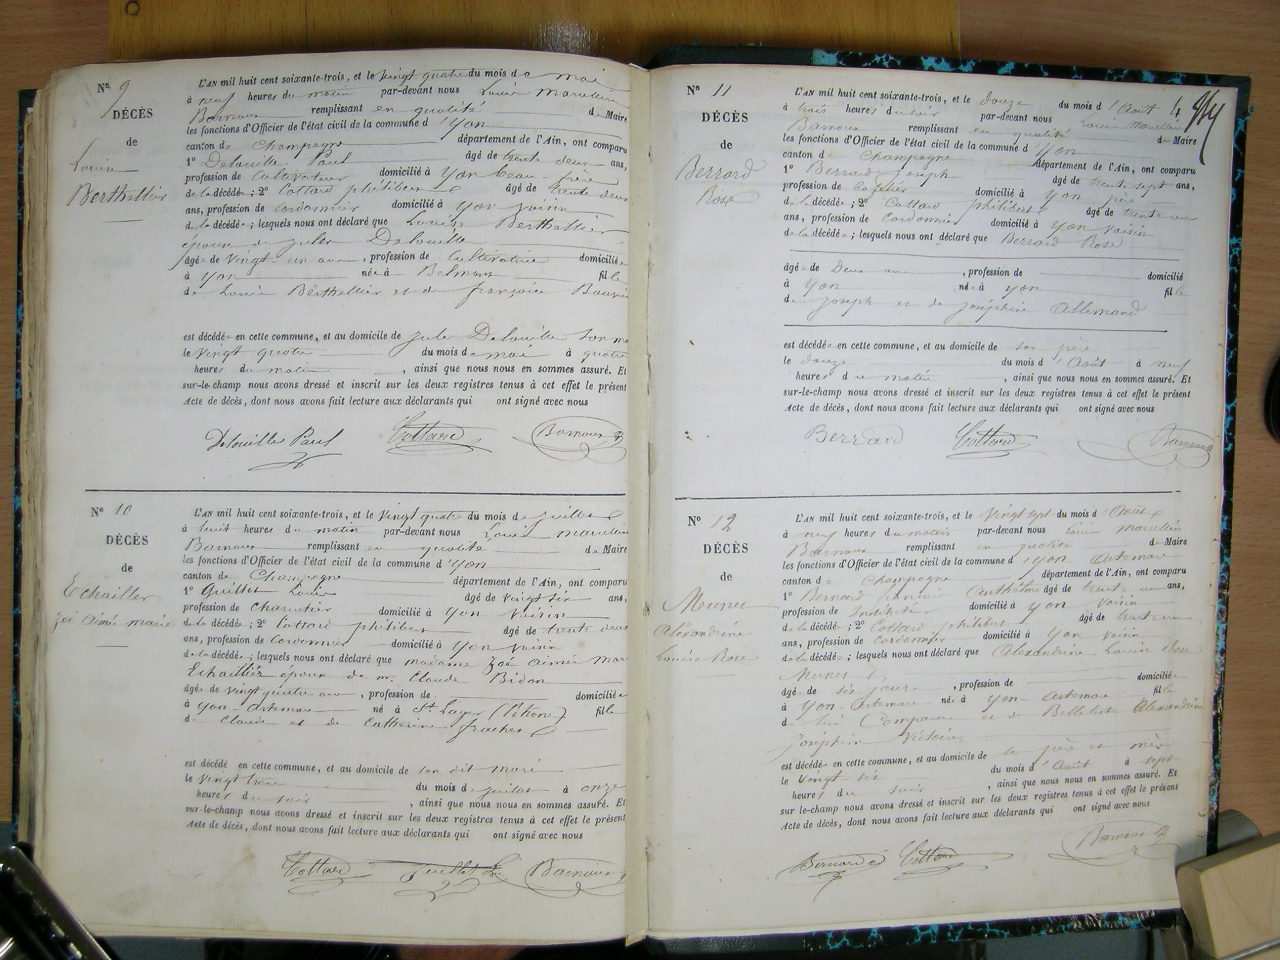 N° 9
DÉCÈS
de
Louise
Berthellier
L'AN mil huit cent soixante-trois, et le vingt quatre du mois de mai
à neuf heures du matin par-devant nous Louis Marcellin
Barnoux remplissant en qualité de Maire
les fonctions d'Officier de l'état civil de la commune d'Yon
canton de Champagne département de l'Ain, ont comparu
1° Delouille Paul âgé de trente deux ans,
profession de cultivateur domicilié à Yon beau frère
de la décédée; 2° Cottard philibert âgé de trente deux
ans, profession de cordonnier domicilié à Yon voisin
de la décédée; lesquels nous ont déclaré que Louise Berthellier
épouse de Jules Delouille
âgée de vingt un ans, profession de cultivateur domiciliée
à Yon née à fille
de Louis Berthellier et de françoise
est décédée en cette commune, et au domicile de Jules Delouille son
le vingt quatre du mois de mai à quatre
heures du matin, ainsi que nous nous en sommes assuré. Et
sur-le-champ nous avons dressé et inscrit sur les deux registres tenus à cet effet le présent
Acte de décès, dont nous avons fait lecture aux déclarants qui ont signé avec nous
Delouille Paul Cottard Barnoux
N° 10
DÉCÈS
de
Echallier
zoé Aimée marie
L'AN mil huit cent soixante-trois, et le vingt quatre du mois de juillet
à huit heures du matin par-devant nous Louis marcellin
Barnoux remplissant en qualité de Maire
les fonctions d'Officier de l'état civil de la commune d'Yon
canton de Champagne département de l'Ain, ont comparu
1° Louis âgé de vingt six ans,
profession de domicilié à Yon voisin
de la décédée; 2° Cottard philibert âgé de trente deux
ans, profession de cordonnier domicilié à Yon voisin
de la décédée; lesquels nous ont déclaré que madame Zoé Aimée
Echallier épouse de m. Claude Bidon
âgée de vingt quatre ans, profession de domiciliée
à Yon-Artemare né à St Lager (Rhône) fille
de Claude et de Catherine
est décédé en cette commune, et au domicile de son dit mari
le vingt trois du mois de juillet à onze
heures du soir, ainsi que nous nous en sommes assuré. Et
sur-le-champ nous avons dressé et inscrit sur les deux registres tenus à cet effet le présent
Acte de décès, dont nous avons fait lecture aux déclarants qui ont signé avec nous
Cottard Barnoux
N° 11
DÉCÈS
de
Berrard
Rose
L'AN mil huit cent soixante-trois, et le douze du mois d'Août
à trois heures du soir par-devant nous Louis Marcellin
Barnoux remplissant en qualité de Maire
les fonctions d'Officier de l'état civil de la commune d'Yon
canton de Champagne département de l'Ain, ont comparu
1° Berrard Joseph âgé de trente sept ans,
profession de domicilié à Yon père
de la décédée; 2° Cottard philibert âgé de trente
ans, profession de Cordonnier domicilié à Yon voisin
de la décédée; lesquels nous ont déclaré que Berrard Rose
âgée de Deux ans, profession de domicilié
à Yon née à Yon fille
de joseph et de joséphine Allemand
est décédée en cette commune, et au domicile de son père
le douze du mois d'Août à neuf
heures du matin, ainsi que nous nous en sommes assuré. Et
sur-le-champ nous avons dressé et inscrit sur les deux registres tenus à cet effet le présent
Acte de décès, dont nous avons fait lecture aux déclarants qui ont signé avec nous
Berrard Cottard Barnoux
N° 12
DÉCÈS
de
Alexandrine
Louise Rose
L'AN mil huit cent soixante-trois, et le vingt sept du mois d'Août
à neuf heures du matin par-devant nous Louis Marcellin
Barnoux remplissant en qualité de Maire
les fonctions d'Officier de l'état civil de la commune d'Yon Artemare
canton de Champagne département de l'Ain, ont comparu
1° Bernard Anthelme âgé de trente ans,
profession de Instituteur domicilié à Yon voisin
de la décédée; 2° Cottard philibert âgé de trente
ans, profession de Cordonnier domicilié à Yon voisin
de la décédée; lesquels nous ont déclaré que Alexandrine Louise Rose
âgée de six jours, profession de domiciliée
à Yon-Artemare née à Yon-Artemare fille
de et de Alexandrine
joséphine Victoire
est décédée en cette commune, et au domicile de père et mère
le vingt six du mois d'Août à sept
heures du soir, ainsi que nous nous en sommes assuré. Et
sur le-champ nous avons dressé et inscrit sur les deux registres tenus à cet effet le présent
Acte de décès, dont nous avons fait lecture aux déclarants qui ont signé avec nous
Bernard Cottard Barnoux